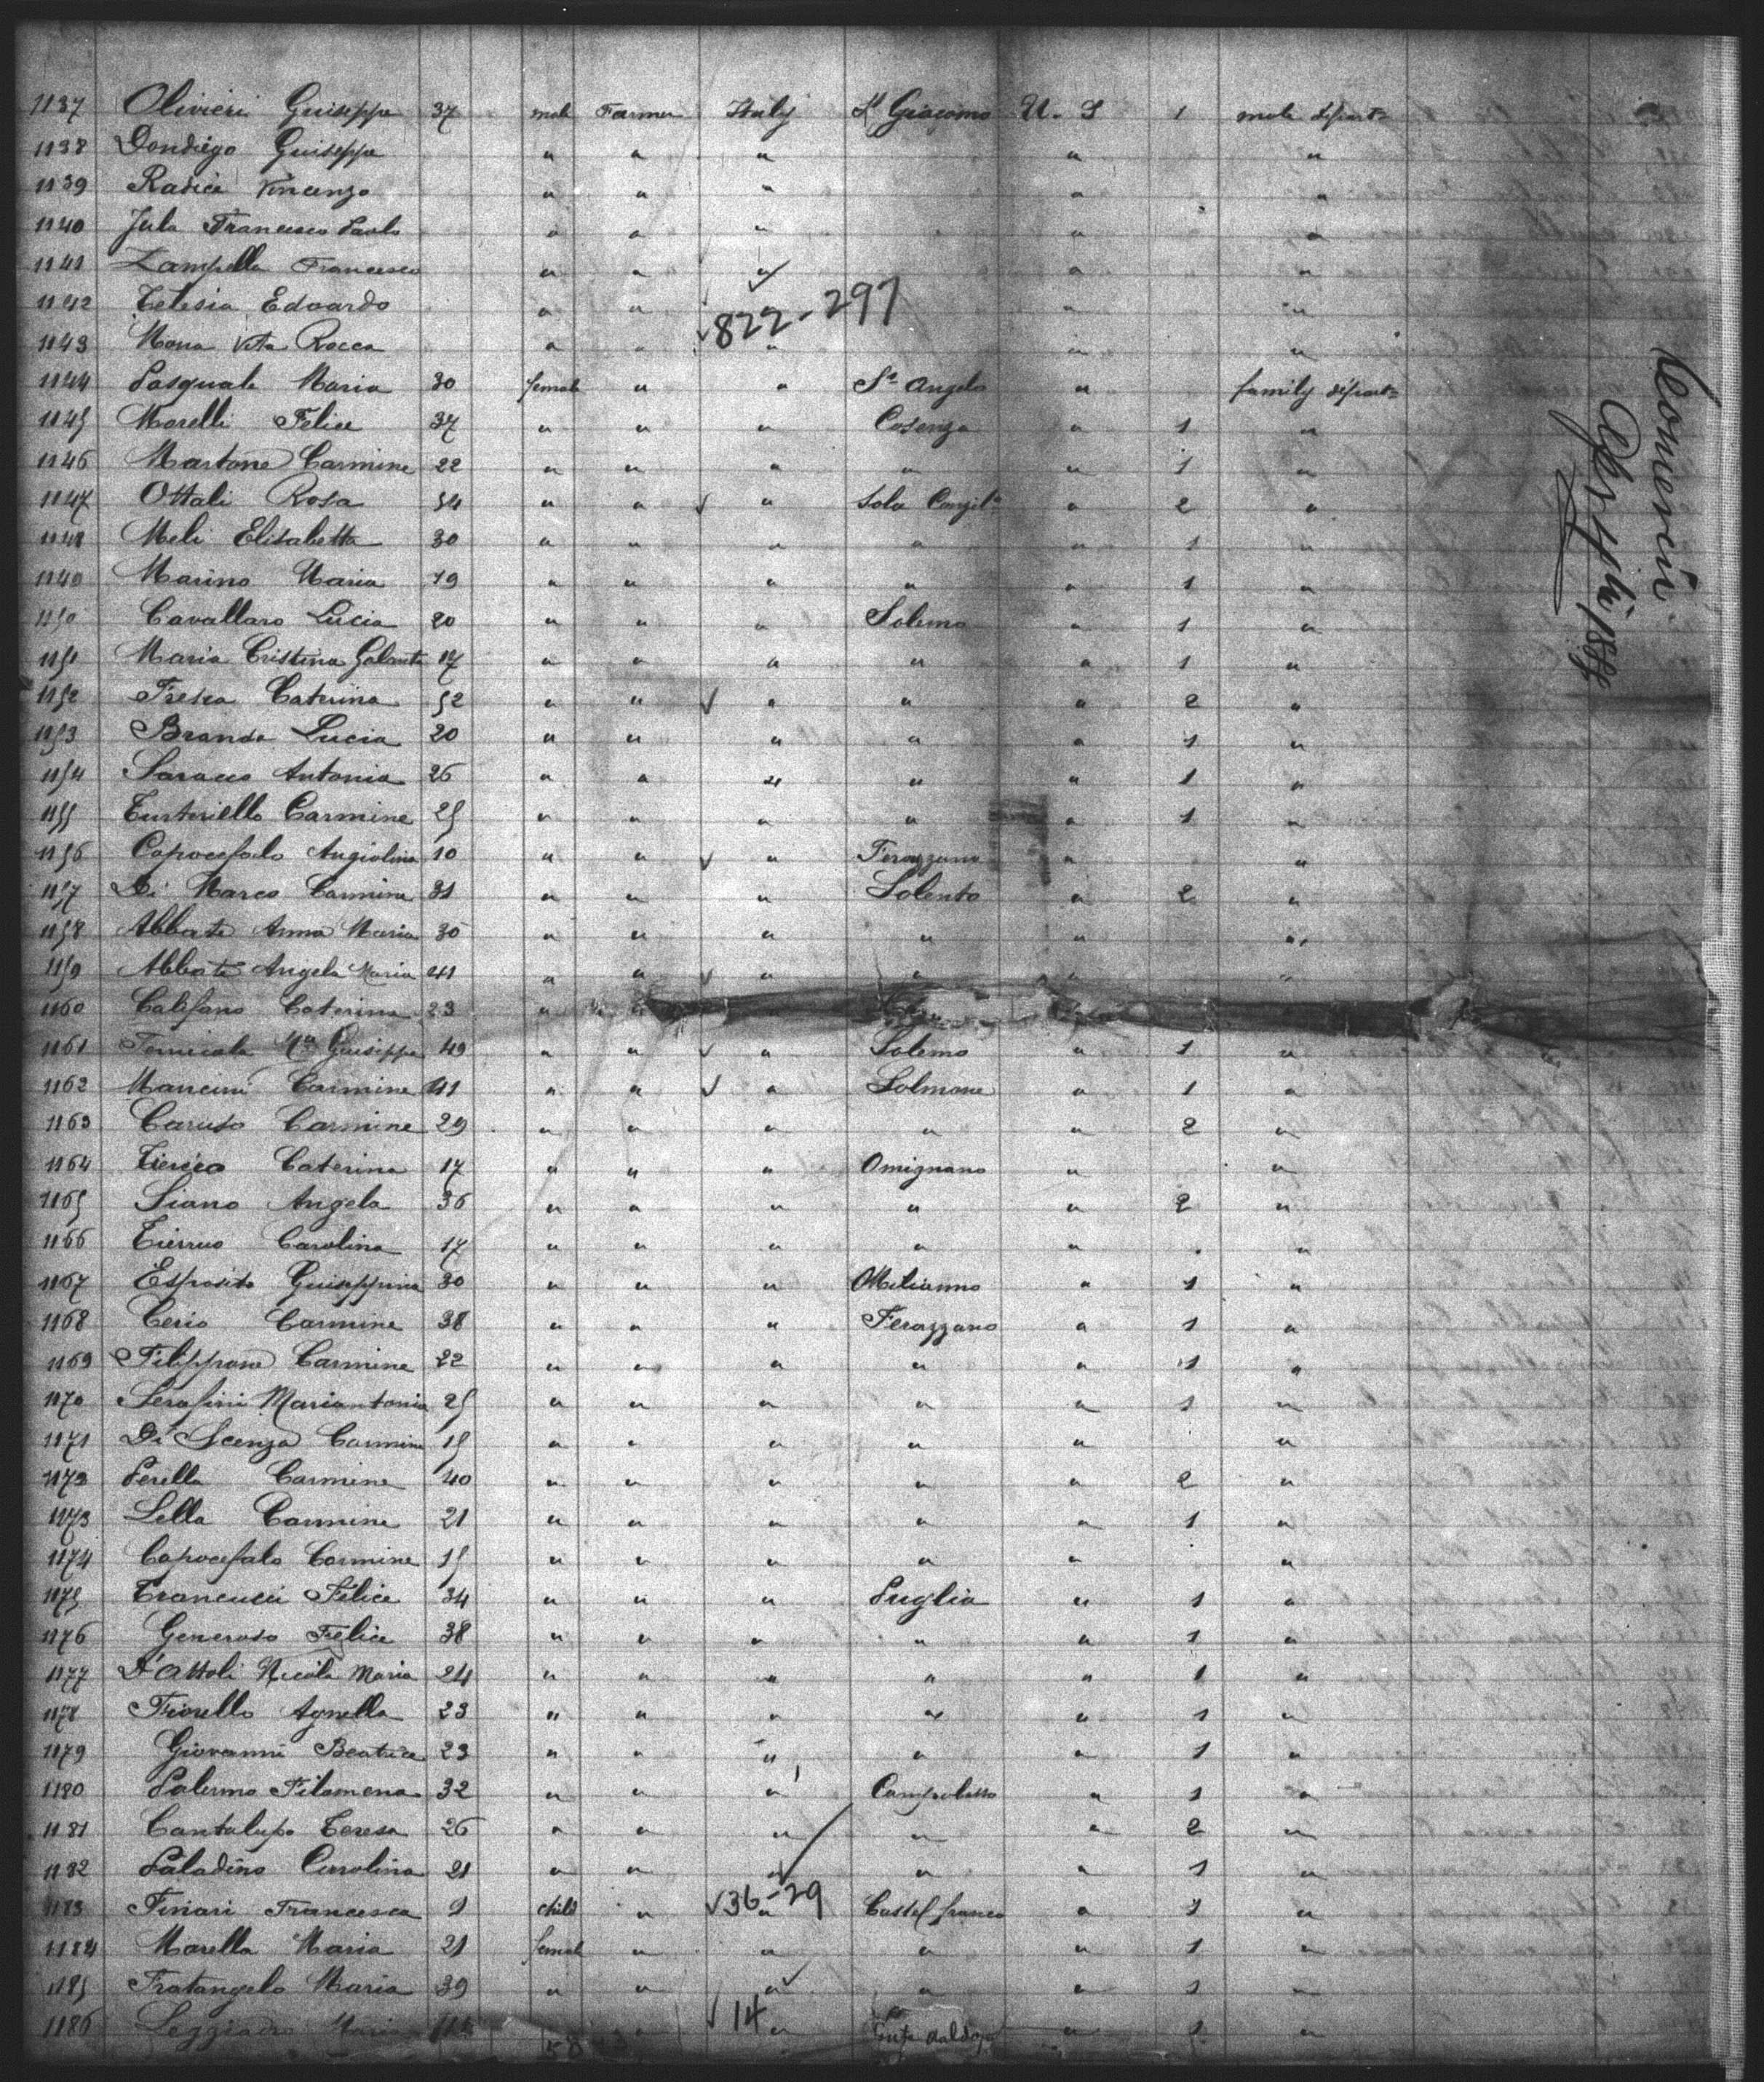 1137 Olivieri Guiseppe 37 male Farmer Italy St Giacomo U. S 1 male depart=
1138 Dondiego Guiseppe " " " " "
1139 Radice Vincenzo " " " " "
1140 Jula Francesco Paolo " " " " "
1141 Zampella Francesco " " " " "
1142 Telesia Edoardo " " " " "
822-297
1143 Mona Vita Rocca " " " " "
1144 Pasquale Maria 30 female " " St Angelo " family depart=
1145 Morelli Felice 37 " " " Cosenza " 1 "
1146 Martone Carmine 22 " " " " " 1 "
1147 Ottali Rosa 54 " " " Sala Consil " 2 "
1148 Meli Elisabetta 30 " " " " " 1 "
1149 Marino Maria 19 " " " " " 1 "
1150 Cavallaro Lucia 20 " " " Solemo " 1 "
1151 Maria Cristina Galante 17 " " " " " 1 "
1152 Fresca Caterina 52 " " " " " 2 "
1153 Branda Lucia 20 " " " " " 1 "
1154 Saracco Antonia 26 " " " " " 1 "
1155 Turturiello Carmine 25 " " " " " 1 "
1156 Capocefalo Angiolina 10 " " " Ferazzano " "
1157 Di Marco Carmine 31 " " " Solento " 2 "
1158 Abbate Anna Maria 30 " " " " " "
1159 Abbate Angela Maria 41 " " " " " "
1160 Califano Caterina 23 "
1161 Guiseppe 49 " " " Solemo " 1 "
1162 Mancini Carmine 41 " " " Solmone " 1 "
1163 Caruso Carmine 29 " " " " " 2 "
1164 Caterina 17 " " " Omignano " "
1165 Siano Angela 36 " " " " " 2 "
1166 Tierno Carolina 17 " " " " " "
1167 Esposito Guiseppina 30 " " " " 1 "
1168 Cerio Carmine 38 " " " Ferazzano " 1 "
1169 Filippone Carmine 22 " " " " " 1 "
1170 Serafini Mariantonia 25 " " " " " 1 "
1171 Di Scenza Carmine 15 " " " " " "
1172 Perella Carmine 40 " " " " " 2 "
1173 Lella Carmine 21 " " " " " 1 "
1174 Capocefalo Carmine 15 " " " " " "
1175 Trancucci Felice 34 " " " Puglia " 1 "
1176 Generoso Felice 38 " " " " " 1 "
1177 D'Attoli Nicola Maria 24 " " " " " 1 "
1178 Fiorello Agnella 23 " " " " " 1 "
1179 Giovanni Beatrice 23 " " " " " 1 "
1180 Palermo Filomena 32 " " " Campobasso " 1 "
1181 Cantalupo Teresa 26 " " " " " 2 "
1182 Paladino Carolina 21 " " " " " 1 "
1183 Finari Francesca 9 child " 36-29 " Castelfranco " 1 "
1184 Marella Maria 21 female " " " " 1 "
1185 Fratangelo Maria 39 " " " " " 1 "
1186 Leggiadro Maria 14 " " 1 "